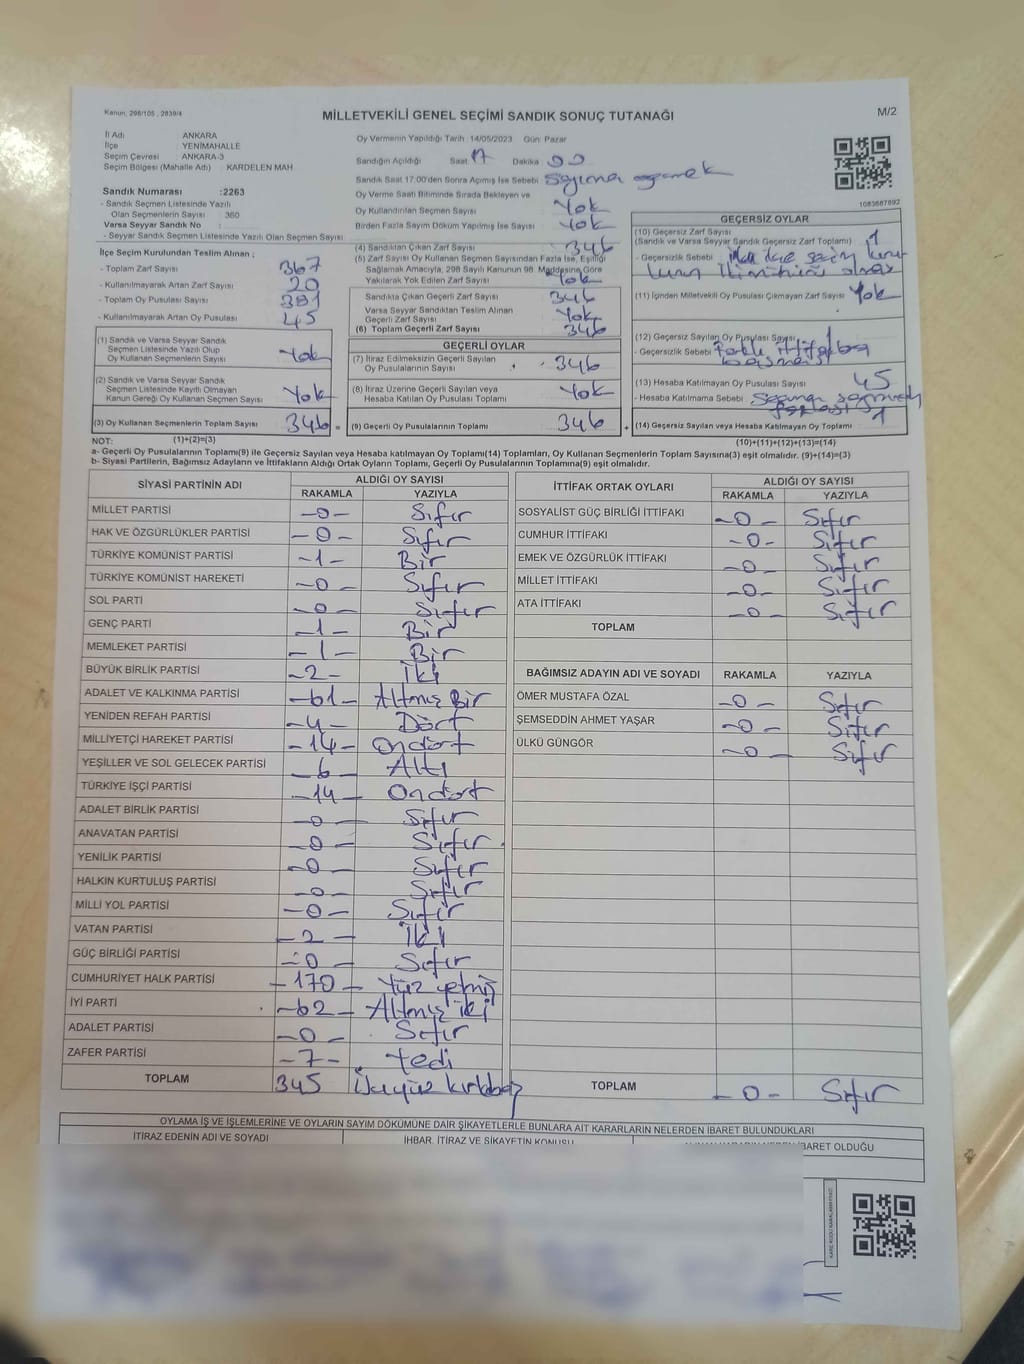 Kanun, 298/105 , 2839/4
MİLLETVEKİLİ GENEL SEÇİMİ SANDIK SONUÇ TUTANAĞI
M/2
İl Adı : ANKARA
İlçe : YENİMAHALLE
Seçim Çevresi : ANKARA-3
Seçim Bölgesi (Mahalle Adı) : KARDELEN MAH
Sandık Numarası :2263
- Sandık Seçmen Listesinde Yazılı
Olan Seçmenlerin Sayısı : 360
Varsa Seyyar Sandık No :
- Seyyar Sandık Seçmen Listesinde Yazılı Olan Seçmen Sayısı
Oy Vermenin Yapıldığı Tarih 14/05/2023 Gün: Pazar
Sandığın Açıldığı Saat 17 Dakika 00
Sandık Saat 17:00'den Sonra Açımış İse Sebebi
Oy Verme Saati Bitiminde Sırada Bekleyen ve
Oy Kullandırılan Seçmen Sayısı Yok
Birden Fazla Sayım Dökümü Yapılmış İse Sayısı Yok
1083687892
İlçe Seçim Kurulundan Teslim Alınan ;
- Toplam Zarf Sayısı 367
- Kullanılmayarak Artan Zarf Sayısı 20
- Toplam Oy Pusulası Sayısı 391
- Kullanılmayarak Artan Oy Pusulası 45
(1) Sandık ve Varsa Seyyar Sandık
Seçmen Listesinde Yazılı Olup
Oy Kullanan Seçmenlerin Sayısı Yok
(2) Sandık ve Varsa Seyyar Sandık
Seçmen Listesinde Kayıtlı Olmayan
Kanun Gereği Oy Kullanan Seçmen Sayısı Yok
(3) Oy Kullanan Seçmenlerin Toplam Sayısı 346 =
(4) Sandıktan Çıkan Zarf Sayısı 346
(5) Zarf Sayısı Oy Kullanan Seçmen Sayısından Fazla İse, Eşitliği
Sağlamak Amacıyla, 298 Sayılı Kanunun 98. Maddesine Göre
Yakılarak Yok Edilen Zarf Sayısı Yok
Sandıkta Çıkan Geçerli Zarf Sayısı 346
Varsa Seyyar Sandıktan Teslim Alınan
Geçerli Zarf Sayısı Yok
(6) Toplam Geçerli Zarf Sayısı 346
GEÇERLİ OYLAR
(7) İtiraz Edilmeksizin Geçerli Sayılan
Oy Pusulalarının Sayısı 346
(8) İtiraz Üzerine Geçerli Sayılan veya
Hesaba Katılan Oy Pusulası Toplamı Yok
(9) Geçerli Oy Pusulalarının Toplamı 346 +
GEÇERSİZ OYLAR
(10) Geçersiz Zarf Sayısı
(Sandık ve Varsa Seyyar Sandık Geçersiz Zarf Toplamı) 1
- Geçersizlik Sebebi
(11) İçinden Milletvekili Oy Pusulası Çıkmayan Zarf Sayısı Yok
(12) Geçersiz Sayılan Oy Pusulası Sayısı 1
- Geçersizlik Sebebi
(13) Hesaba Katılmayan Oy Pusulası Sayısı 45
- Hesaba Katılmama Sebebi
(14) Geçersiz Sayılan veya Hesaba Katılmayan Oy Toplamı 1
NOT: (1)+(2)=(3) (10)+(11)+(12)+(13)=(14)
a- Geçerli Oy Pusulalarının Toplamı(9) ile Geçersiz Sayılan veya Hesaba katılmayan Oy Toplamı(14) Toplamları, Oy Kullanan Seçmenlerin Toplam Sayısına(3) eşit olmalıdır. (9)+(14)=(3)
b- Siyasi Partilerin, Bağımsız Adayların ve İttifakların Aldığı Ortak Oyların Toplamı, Geçerli Oy Pusulalarının Toplamına(9) eşit olmalıdır.
SİYASİ PARTİNİN ADI ALDIĞI OY SAYISI
RAKAMLA YAZIYLA
MİLLET PARTİSİ -0- Sıfır
HAK VE ÖZGÜRLÜKLER PARTİSİ -0- Sıfır
TÜRKİYE KOMÜNİST PARTİSİ -1- Bir
TÜRKİYE KOMÜNİST HAREKETİ -0- Sıfır
SOL PARTİ -0- Sıfır
GENÇ PARTİ -1- Bir
MEMLEKET PARTİSİ -1- Bir
BÜYÜK BİRLİK PARTİSİ -2- İki
ADALET VE KALKINMA PARTİSİ -61- Altmış Bir
YENİDEN REFAH PARTİSİ -4- Dört
MİLLİYETÇİ HAREKET PARTİSİ -14- Ondört
YEŞİLLER VE SOL GELECEK PARTİSİ -6- Altı
TÜRKİYE İŞÇİ PARTİSİ -14- Ondört
ADALET BİRLİK PARTİSİ -0- Sıfır
ANAVATAN PARTİSİ -0- Sıfır
YENİLİK PARTİSİ -0- Sıfır
HALKIN KURTULUŞ PARTİSİ -0- Sıfır
MİLLİ YOL PARTİSİ -0- Sıfır
VATAN PARTİSİ -2- İki
GÜÇ BİRLİĞİ PARTİSİ -0- Sıfır
CUMHURİYET HALK PARTİSİ -170- Yüz yetmiş
İYİ PARTİ -62- Altmış iki
ADALET PARTİSİ -0- Sıfır
ZAFER PARTİSİ -7- Yedi
TOPLAM 345 Üçyüz kırkbeş
İTTİFAK ORTAK OYLARI ALDIĞI OY SAYISI
RAKAMLA YAZIYLA
SOSYALİST GÜÇ BİRLİĞİ İTTİFAKI -0- Sıfır
CUMHUR İTTİFAKI -0- Sıfır
EMEK VE ÖZGÜRLÜK İTTİFAKI -0- Sıfır
MİLLET İTTİFAKI -0- Sıfır
ATA İTTİFAKI -0- Sıfır
TOPLAM
BAĞIMSIZ ADAYIN ADI VE SOYADI RAKAMLA YAZIYLA
ÖMER MUSTAFA ÖZAL -0- Sıfır
ŞEMSEDDİN AHMET YAŞAR -0- Sıfır
ÜLKÜ GÜNGÖR -0- Sıfır
TOPLAM -0- Sıfır
OYLAMA İŞ VE İŞLEMLERİNE VE OYLARIN SAYIM DÖKÜMÜNE DAİR ŞİKAYETLERLE BUNLARA AİT KARARLARIN NELERDEN İBARET BULUNDUKLARI
İTİRAZ EDENİN ADI VE SOYADI İHBAR, İTİRAZ VE ŞİKAYETİN KONUSU İBARET OLDUĞU